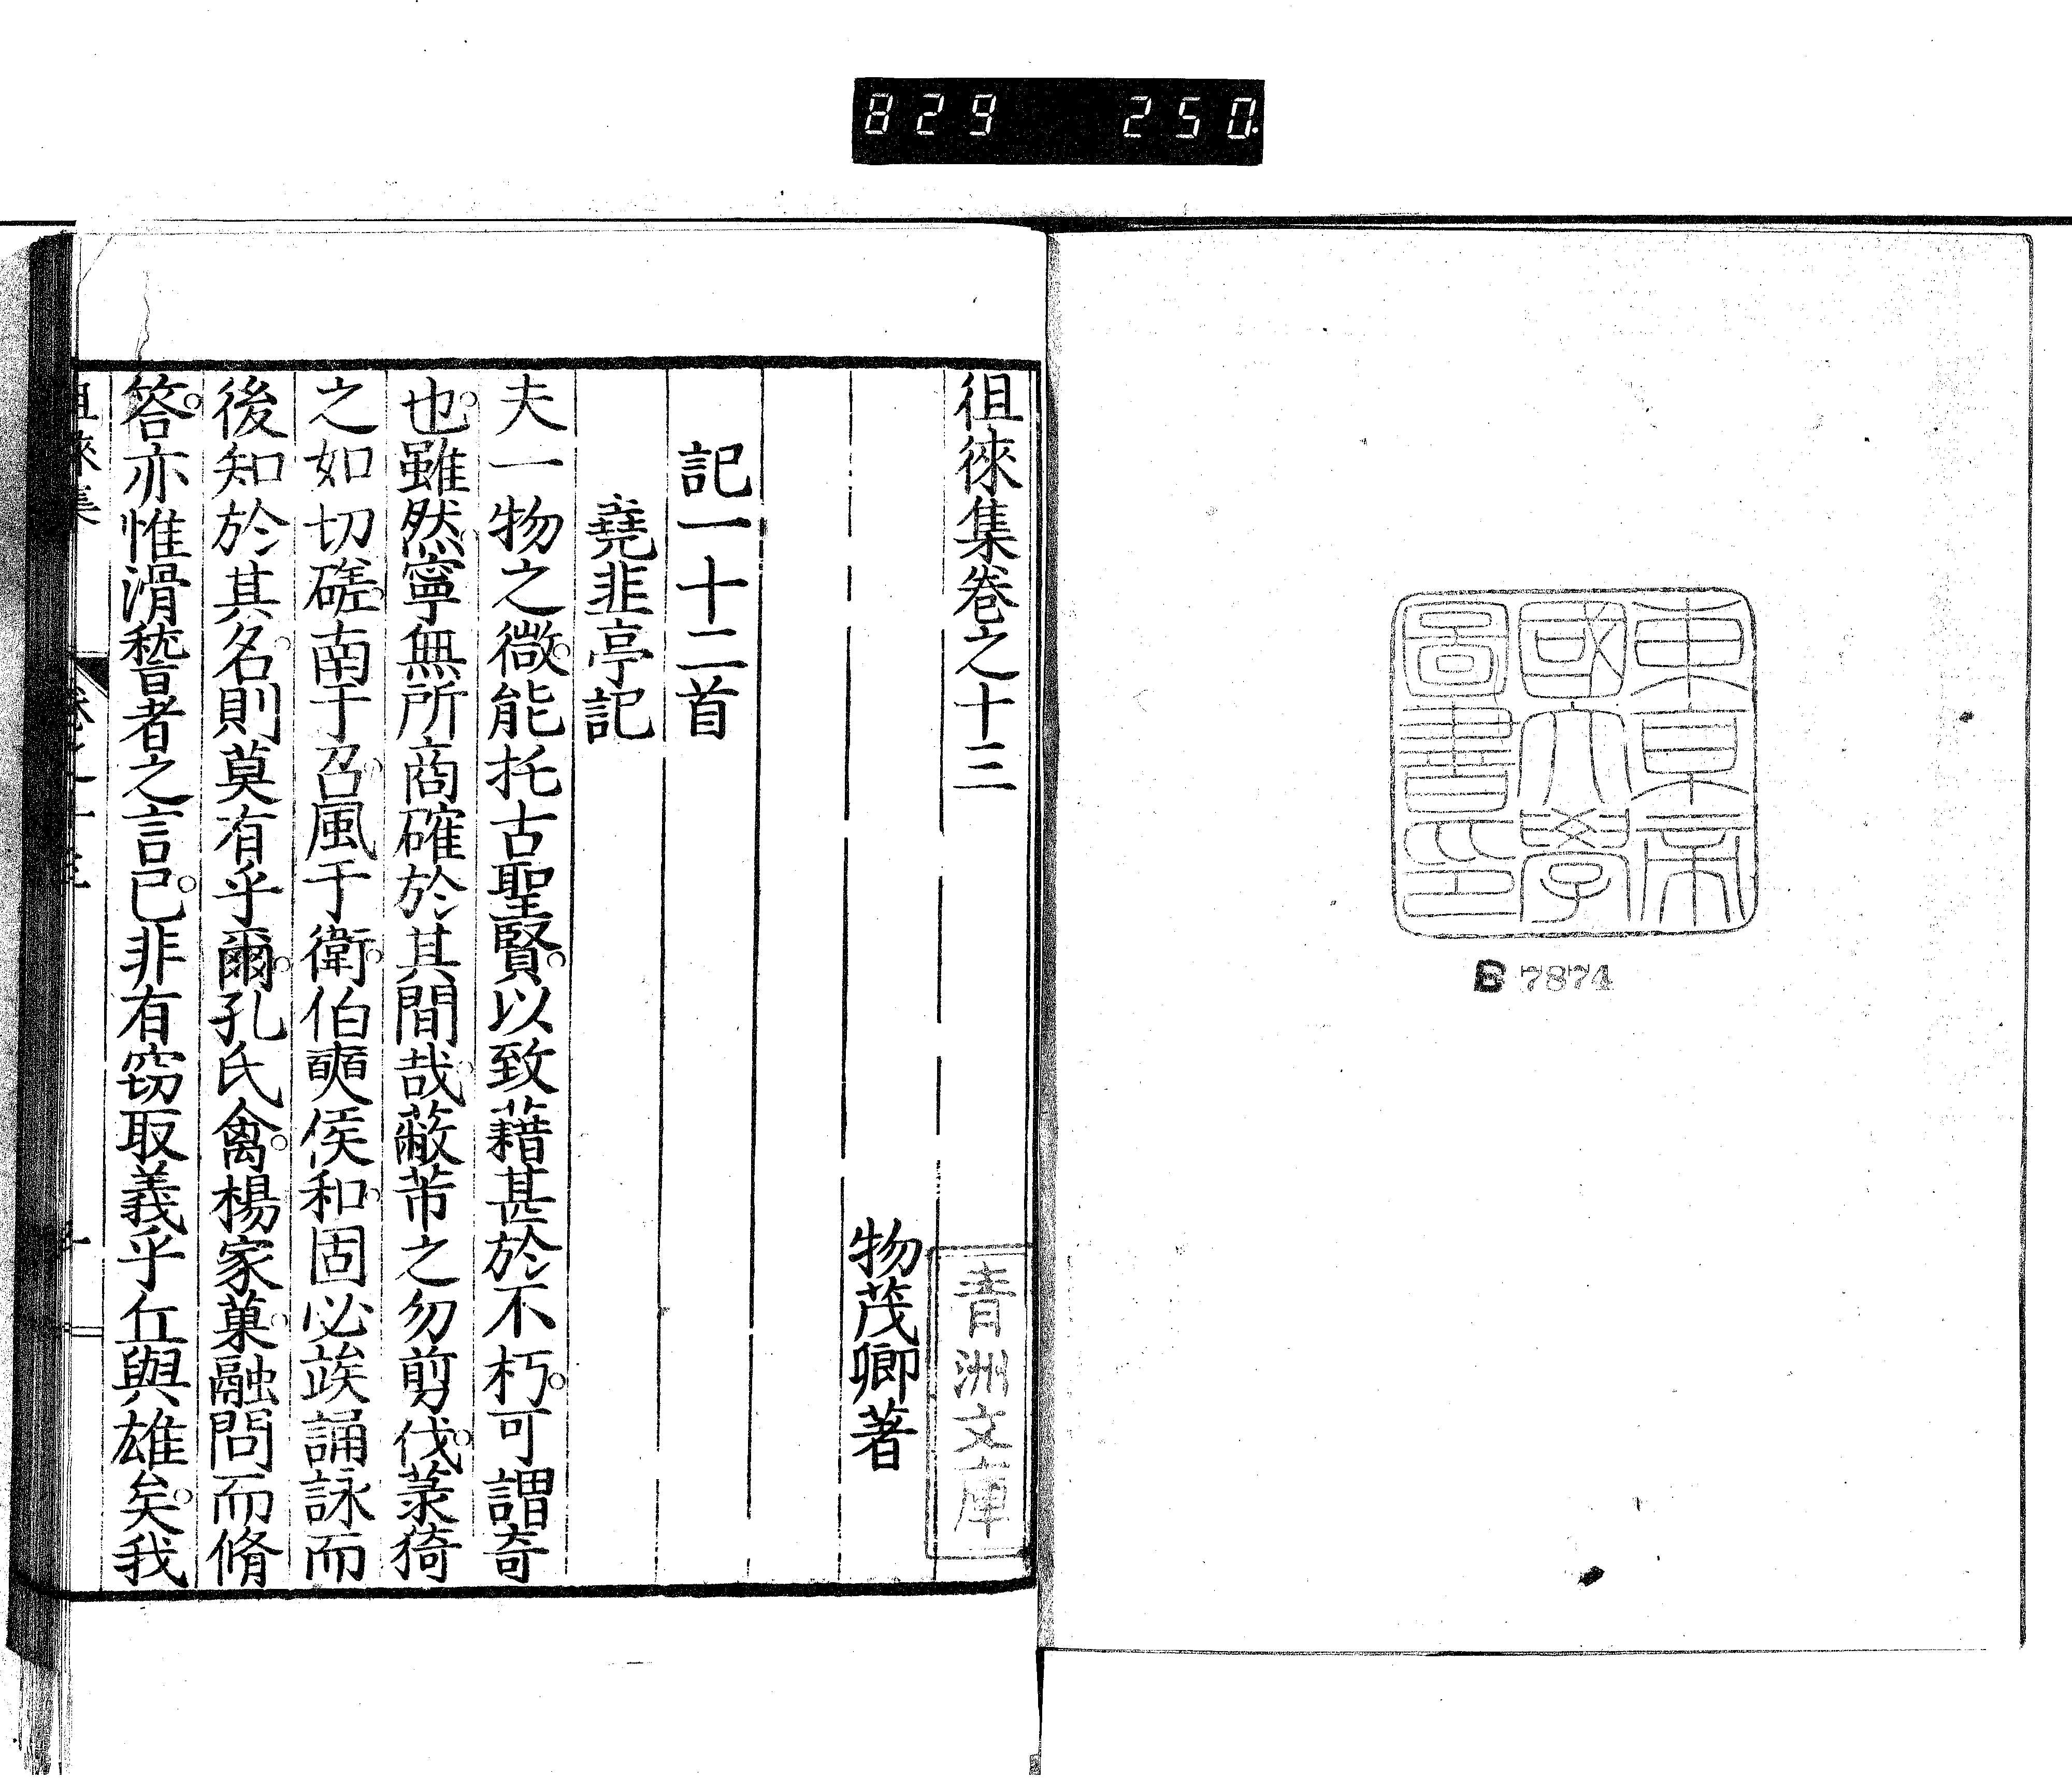 829 250
東京帝
國大學
圖書印
B 7874
徂徠集卷之十三
青洲文庫
物茂卿著
記一十二首
堯韭亭記
夫一物之微能托古聖賢以致藉甚於不朽可謂奇
也雖然寧無所商確於其間哉蔽芾之勿剪伐菉猗
之如切磋南于召風于衛伯奭侯和固必竢誦詠而
後知於其名則莫有乎爾孔氏禽楊家菓融問而脩
答亦惟滑稽者之言已非有竊取義乎丘與雄矣我